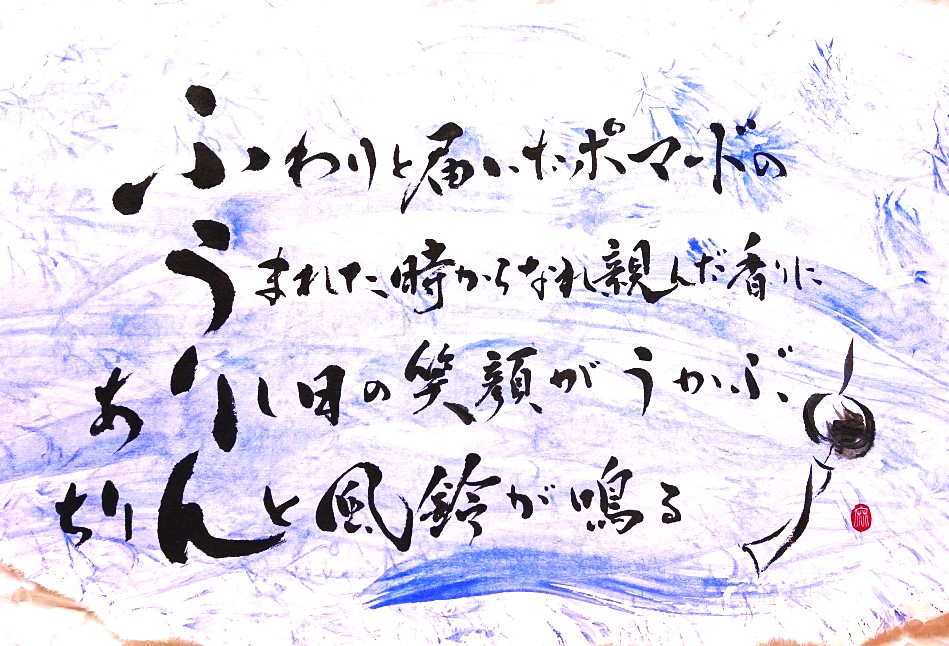 ふわりと届いたポマードの
うまれた時からなれ親しんだ香りに
ありし日の笑顔がうかぶ
ちりんと風鈴が鳴る